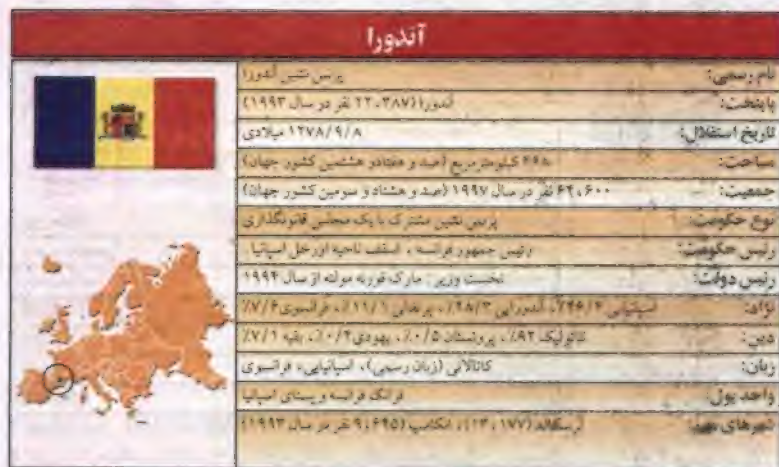 آندورا
نام رسمی: پرنس نشین آندورا
پایتخت: آندورا (۲۲،۳۸۷ نفر در سال ۱۹۹۳)
تاریخ استقلال: ۱۲۷۸/۹/۸ میلادی
مساحت: ۴۶۸ کیلومترمربع (صد و هفتادو هشتمین کشور جهان)
جمعیت: ۶۴،۶۰۰ نفر در سال ۱۹۹۷ (صد و هشتاد و سومین کشور جهان)
نوع حکومت: پرنس نشین مشترک با یک مجلس قانونگذاری
رئیس حکومت: رئیس جمهور فرانسه ، اسقف ناحیه اورخل اسپانیا
رئیس دولت: نخست وزیر: مارک فورنه مولنه از سال ۱۹۹۴
نژاد: اسپانیایی ۴۶/۴٪، آندورایی ۲۸/۳٪، پرتغالی ۱۱/۱٪، فرانسوی ۷/۶٪
دین: کاتولیک ۹۲٪، پروتستان ۰/۵٪، یهودی ۰/۴٪، بقیه ۷/۱٪
زبان: کاتالانی (زبان رسمی)، اسپانیایی، فرانسوی
واحد پول: فرانک فرانسه و پستای اسپانیا
شهرهای مهم: (۱۳،۱۷۷)، انکامپ (۹،۶۹۵ نفر در سال ۱۹۹۳)